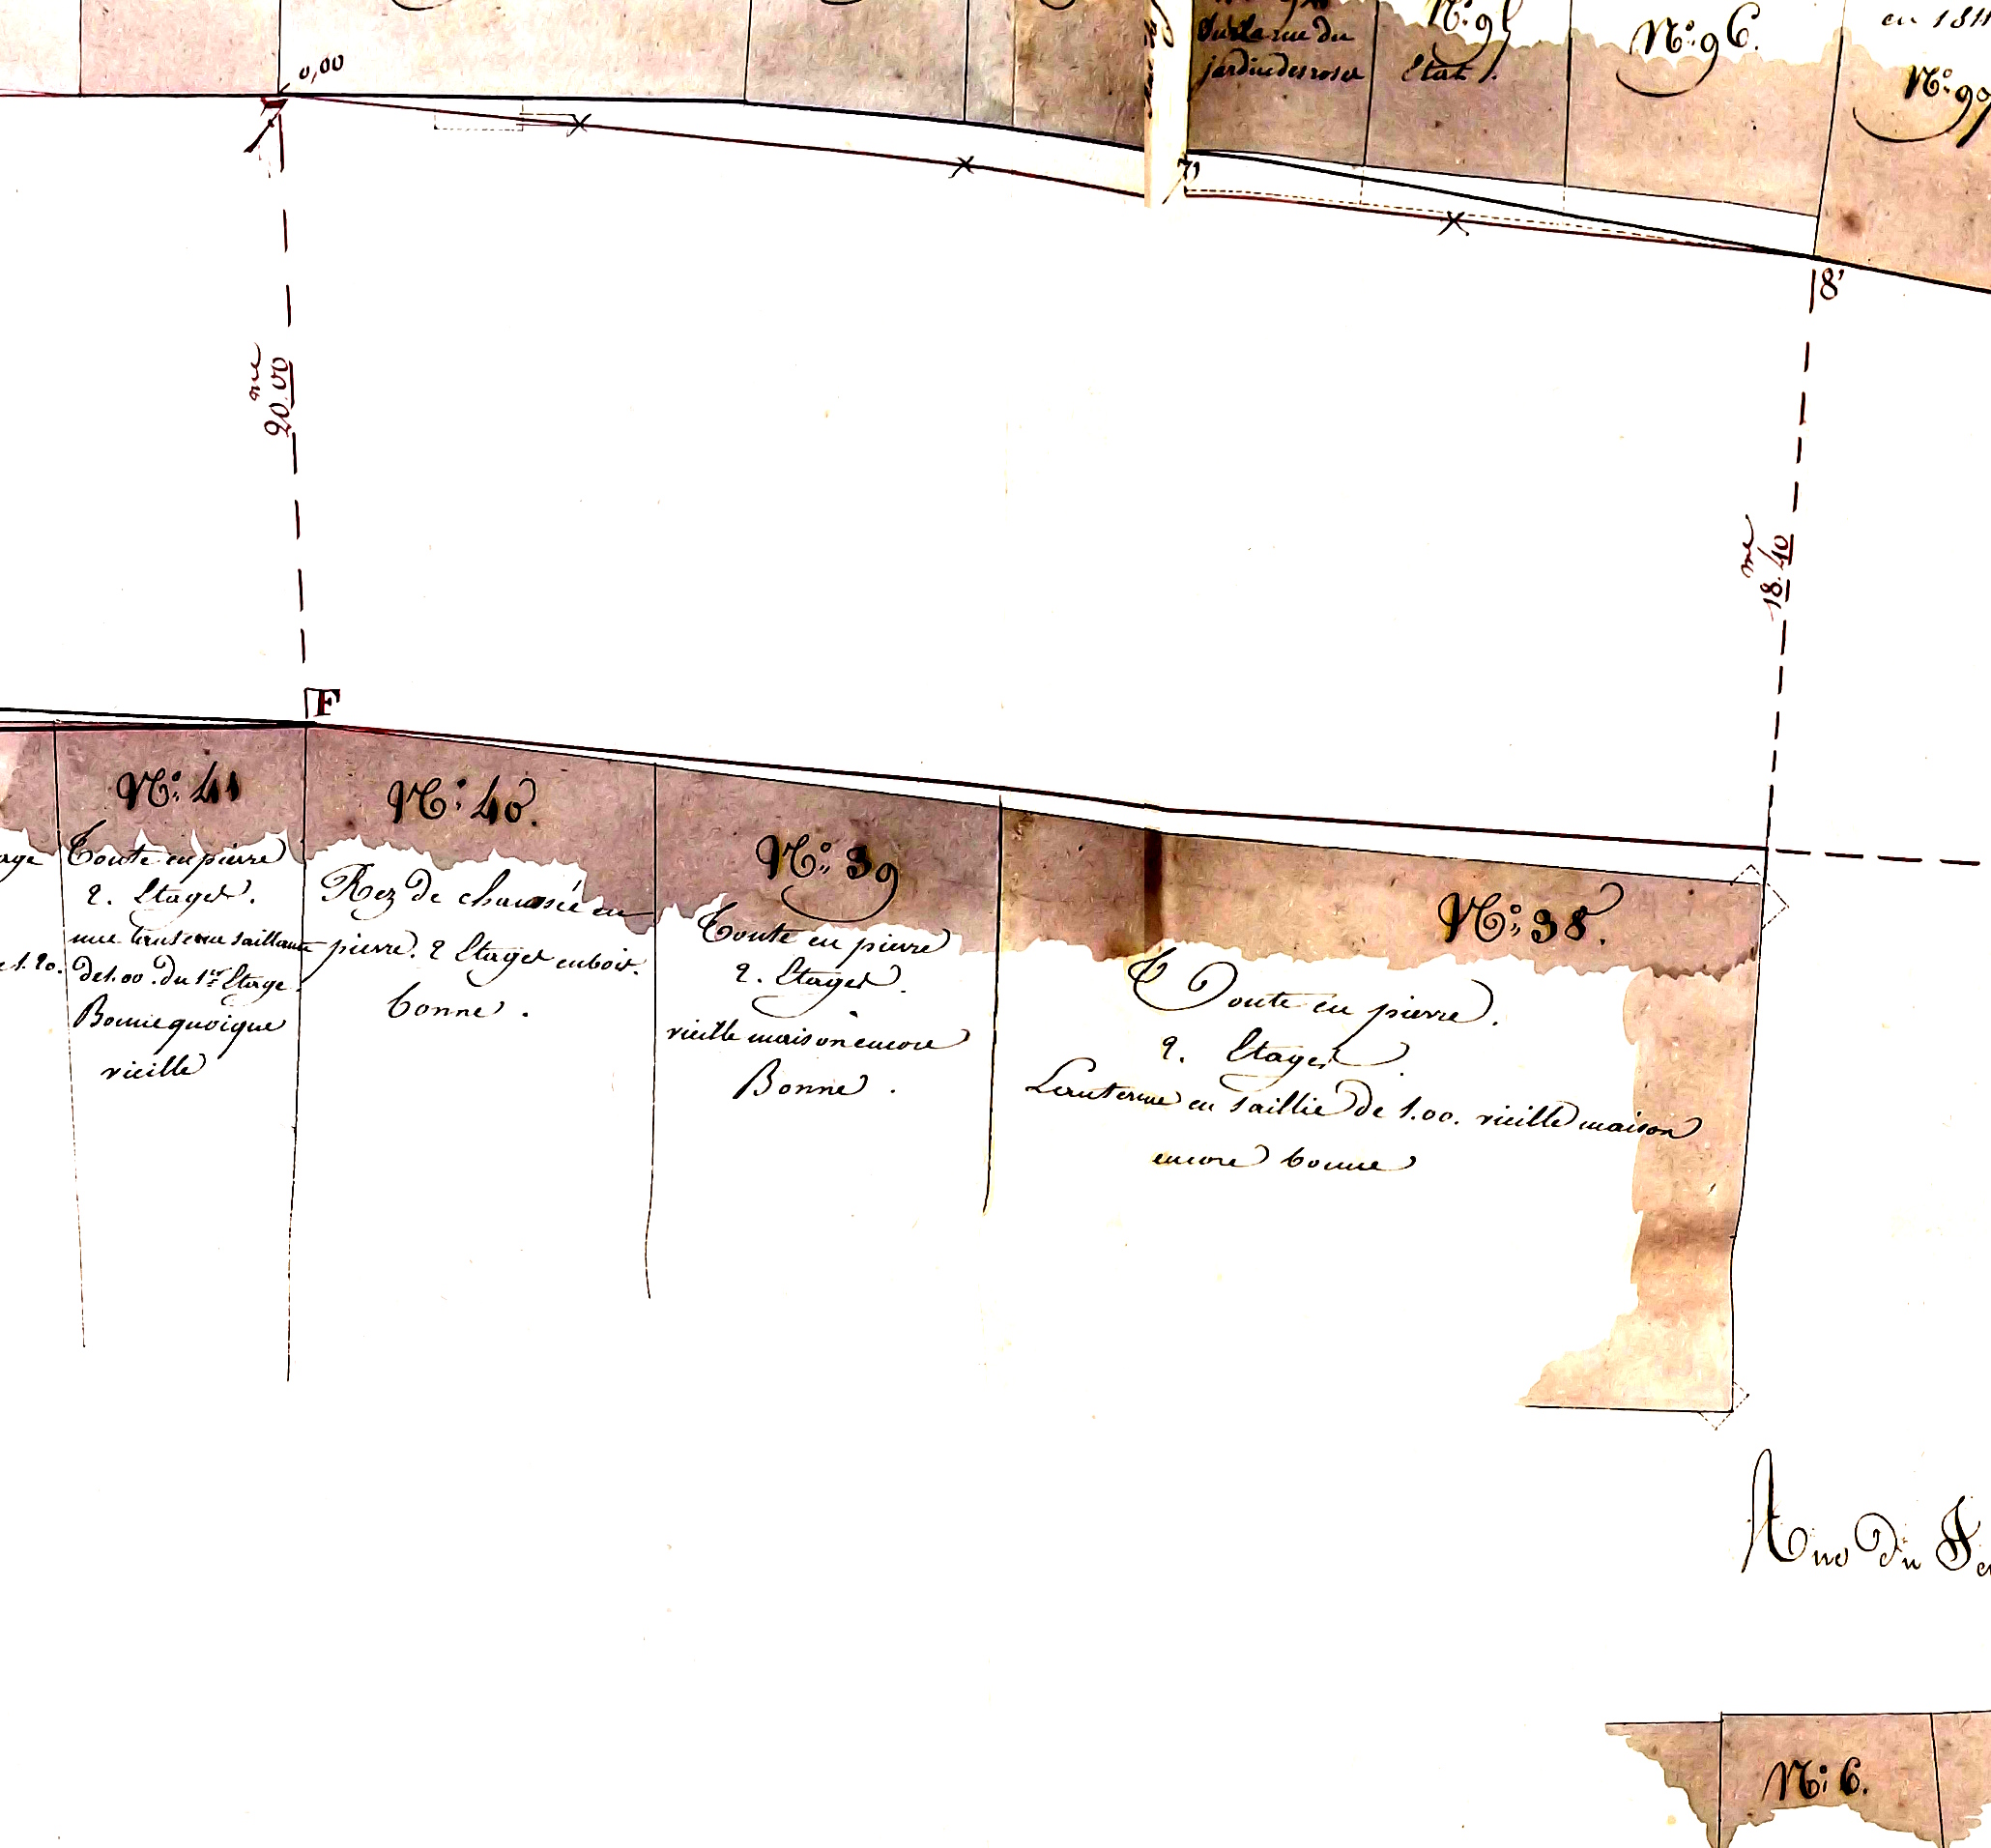 0,00
sur la rue du
jardin des roses
N.° 95
Etat.
N.° 96.
en 181
N.° 97
7
7'
8'
me
20.00
me
18.40
F
N.° 41
Toute en pierre
2. Etages.
une lanterne saillante
de 1.00 du 1er Etage.
Bonne quoique
vieille
age
e 1.20.
N.° 40.
Rez de chaussée en
pierre. 2 Etages en bois.
bonne.
N.° 39
Toute en pierre
2. Etages.
vieille maison encore
Bonne.
N.° 38.
Toute en pierre.
2. Etages.
Lanterne en saillie de 1.00. vieille maison
encore bonne
Rue du
N.° 6.